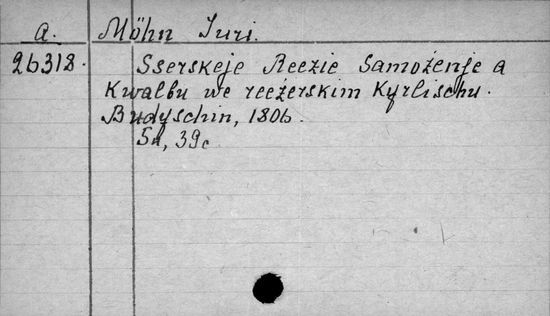 a. Möhn Juri.
26318. Sserskeje Reezie Samożenje a
Kwalbu we reeżerskim Kyrlischu.
Budyschin, 1806.
5u, 39c